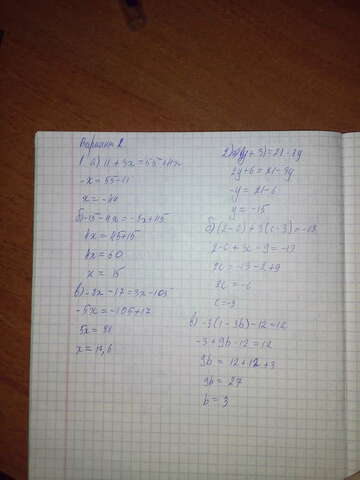 Вариант 2
1. а) 11 + 3x = 55 + 4x
-x = 55 - 11
x = -44
б) -15 - 4x = -8x + 45
4x = 45 + 15
4x = 60
x = 15
в) -2x - 17 = 3x - 105
-5x = -105 + 17
5x = 88
x = 17,6
2y + 6 = 21 - 3y
-y = 21 - 6
y = -15
б) (2 - c) + 3(c - 3) = -13
2 - c + 3c - 9 = -13
2c = -13 - 2 + 9
2c = -6
c = -3
в) -3(1 - 3b) - 12 = 12
-3 + 9b - 12 = 12
9b = 12 + 12 + 3
9b = 27
b = 3